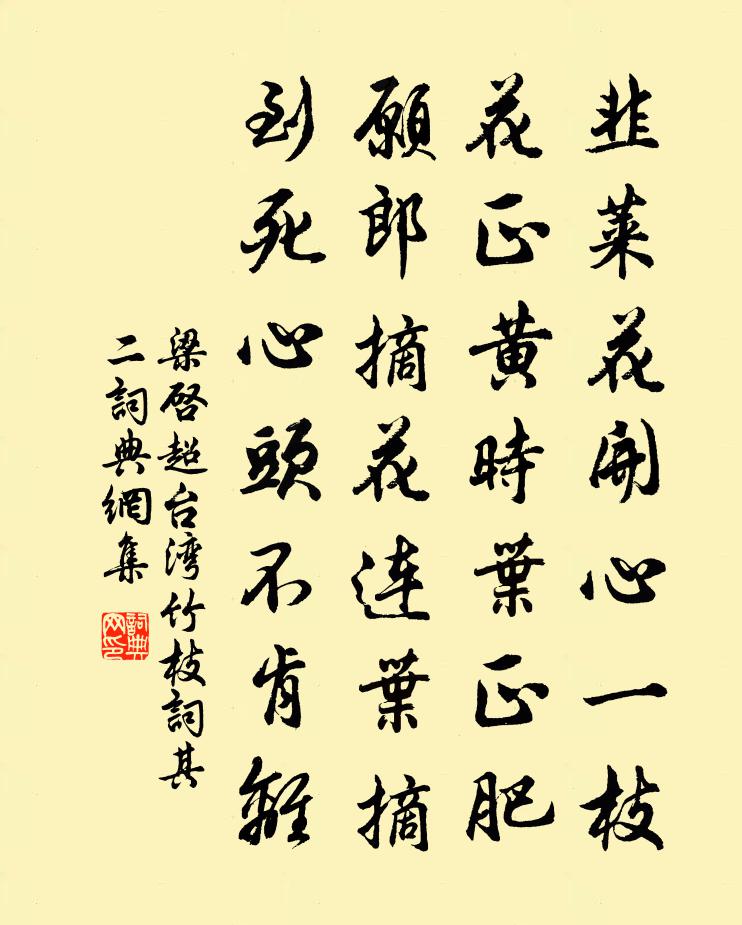 韭菜花開心一枝
花正黃時葉正肥
願郎摘花連葉摘
到死心頭不肯離
梁啓超台湾竹枝詞其
二詞典網集
詞典
网印